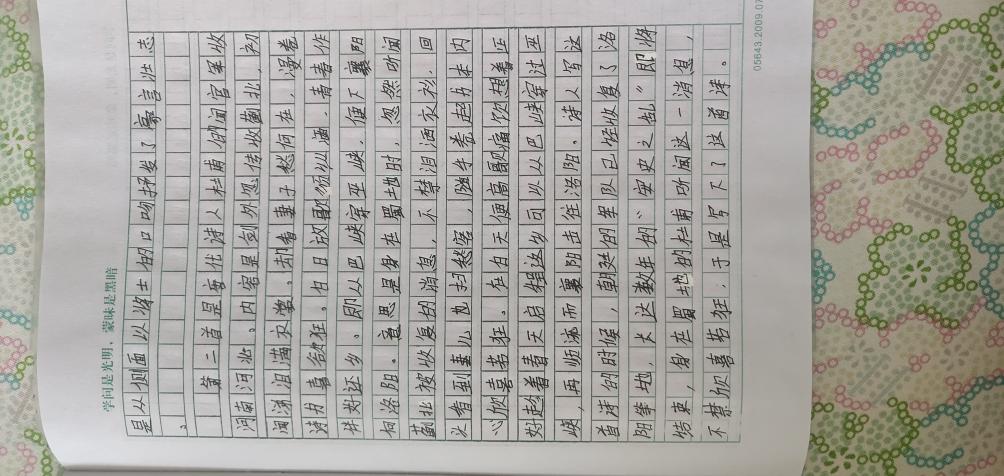 学问是光明，蒙昧是黑暗
是从侧面以将士的口吻抒发了豪言壮志
。
第二首是唐代诗人杜甫的闻官军收
河南河北。内容是剑外忽传收蓟北，初
闻涕泪满衣裳。却看妻子愁何在，漫卷
诗书喜欲狂。白日放歌须纵酒，青春作
伴好还乡。即从巴峡穿巫峡，便下襄阳
向洛阳。意思是身在蜀地时，忽然听闻
蓟北被收复的消息，不禁泪洒衣衫，回
头看到妻儿也扫愁容，随手卷起书本内
心欣喜若狂。在白天便高歌痛饮想着正
好趁着春天启程返乡可以从巴峡穿过巫
峡，再顺流而襄阳去往洛阳。诗人写这
首诗的时候，朝廷的军队已经收复了洛
阳等地，长达数年的“安史之乱”即将
结束，身在蜀地的杜甫听闻这一消息，
不禁欣喜若狂，于是写下了这首诗。
05643.2009.07